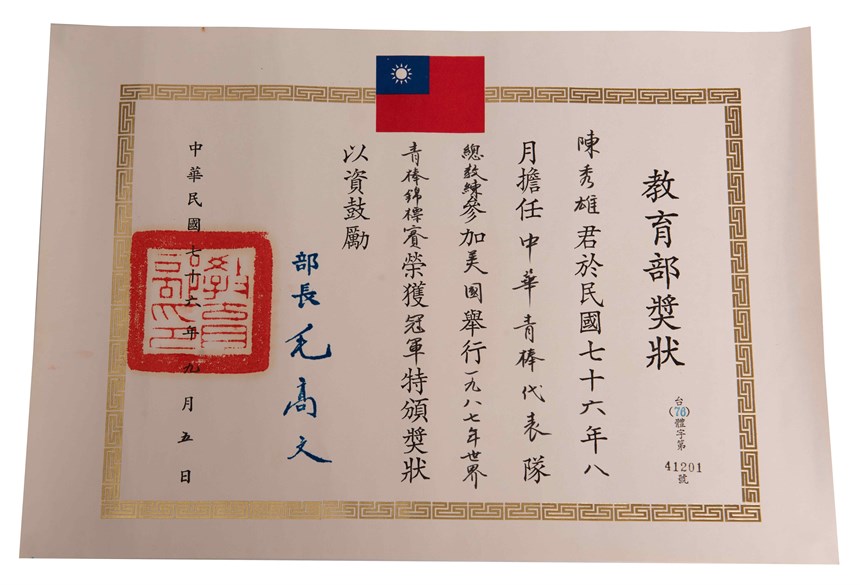 教育部獎狀
台(76)體字第41201號
陳秀雄君於民國七十六年八
月擔任中華青棒代表隊
總教練參加美國舉行一九八七年世界
青棒錦標賽榮獲冠軍特頒獎狀
以資鼓勵
部長毛高文
中華民國七十六年九月五日